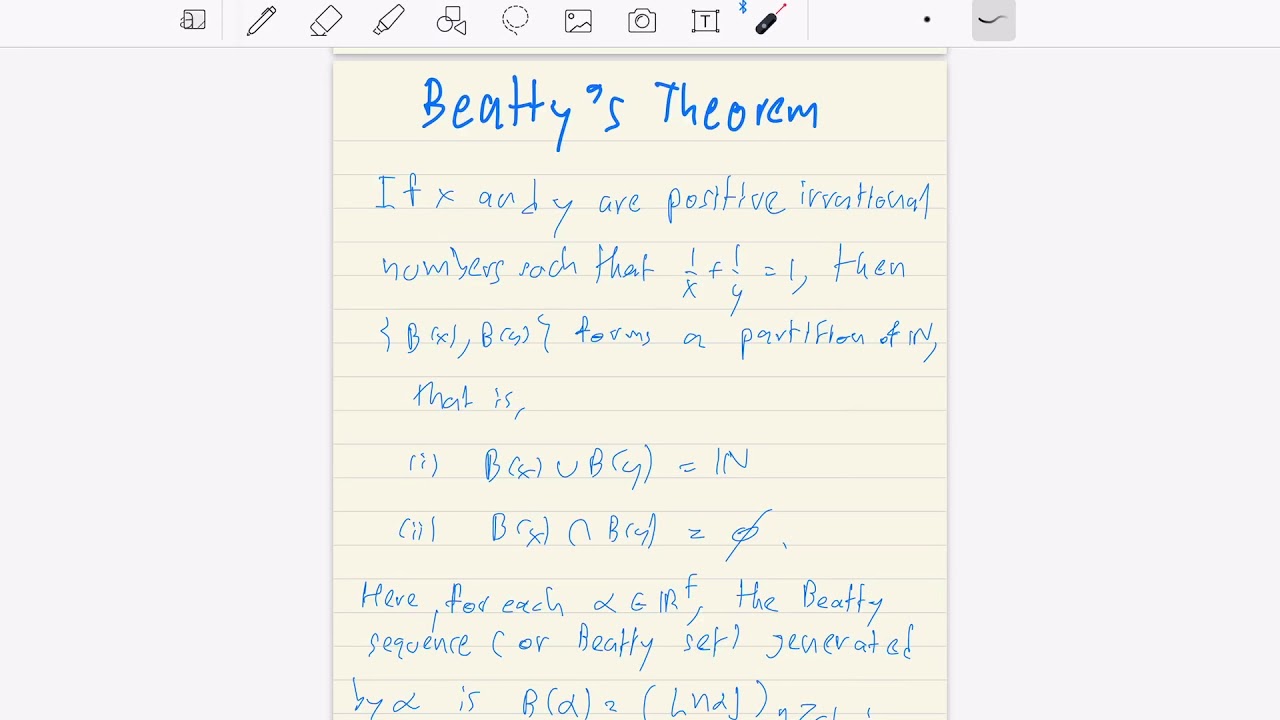 Beatty's Theorem
If x and y are positive irrational
numbers such that 1/x + 1/y = 1, then
{B(x), B(y)} forms a partition of ℕ,
that is,
(i) B(x) ∪ B(y) = ℕ
(ii) B(x) ∩ B(y) = ∅.
Here, for each α ∈ ℝ⁺, the Beatty
sequence (or Beatty set) generated
by α is B(α) = (⌊nα⌋)